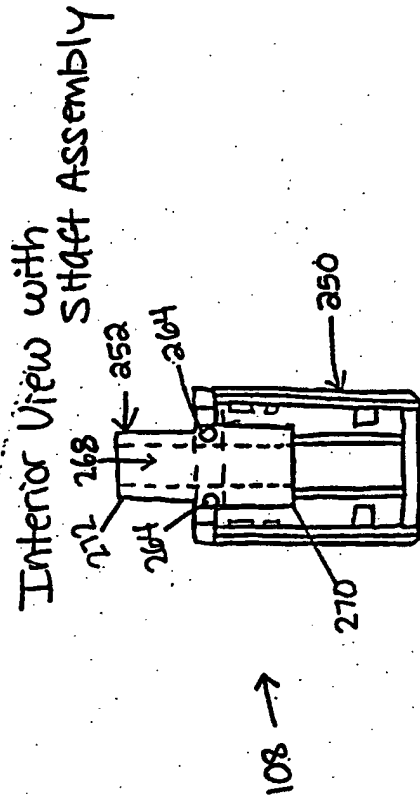 Interior View with
Shaft Assembly
272
268
252
264
264
250
270
108